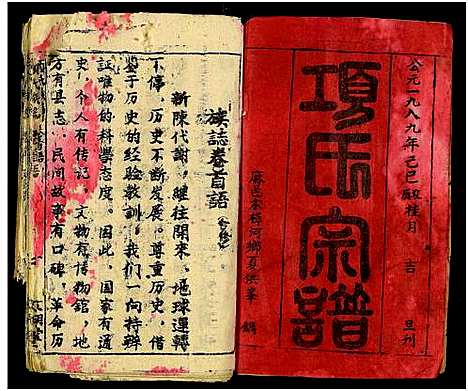 公元一九八九年己巳歲桂月 吉 旦刊
項氏宗譜
族誌卷首語
新陳代謝，繼往開來，地球運轉
不停，歷史不斷發展。尊重歷史，借
鉴于歷史的经验教訓，我们一向持辨
証唯物的科學态度。因此，国家有通
史，个人有传记，文物有博物舘，地
方有县志，民间故事有口碑，革命历